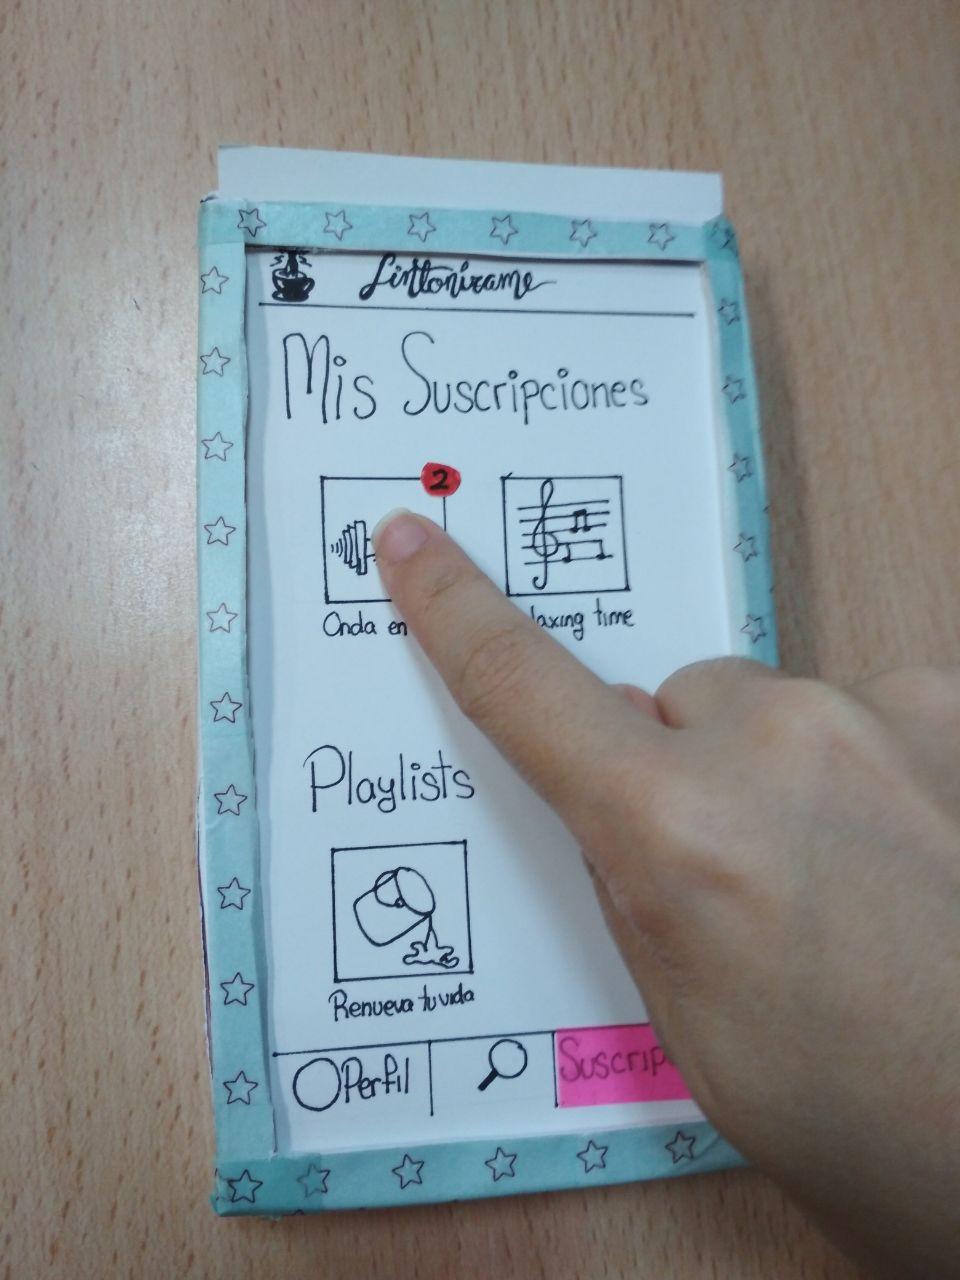 Sinttonizame
Mis Suscripciones
2
Onda en
time
Playlists
Renueva tu vida
Perfil